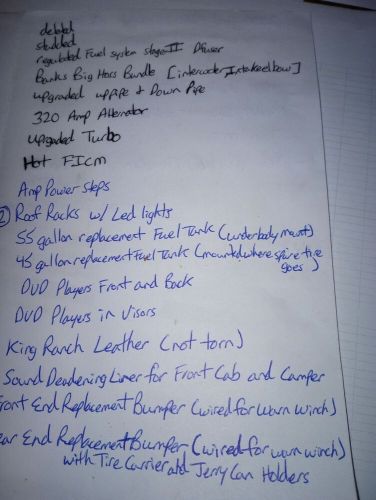 deleted
studded
regulated Fuel system stage II
Banks Big Hoss Bundle [intercooler, Intake elbow]
upgraded uppipe & Down Pipe
320 Amp Alternator
upgraded Turbo
Hot FICM
Amp Power steps
2) Roof Racks w/ Led lights
55 gallon replacement Fuel Tank (underbody mount)
45 gallon replacement Fuel Tank (mounted where spare tire
goes)
DVD Players Front and Back
DVD Players in Visors
King Ranch Leather (not torn)
Sound Deadening Liner for Front Cab and Camper
Front End Replacement Bumper (wired for warn winch)
ear End Replacement Bumper (wired for warn winch)
with Tire Carrier and Jerry Can Holders